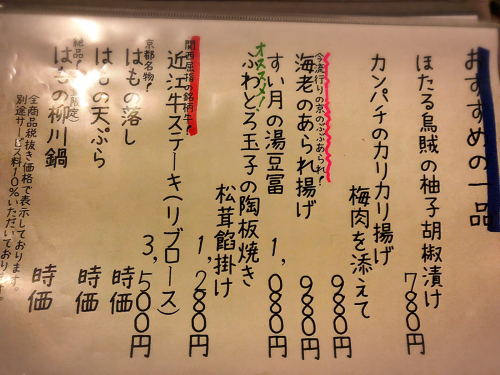 おすすめの一品
ほたる烏賊の柚子胡椒漬け 780円
カンパチのカリカリ揚げ
梅肉を添えて 980円
今流行りの京のぶぶあられ!
海老のあられ揚げ 980円
すい月の湯豆冨 1,080円
オススメ!
ふわとろ玉子の陶板焼き
松茸餡掛け 1,280円
関西屈指の銘柄牛!
近江牛ステーキ(リブロース) 3,500円
京都名物!
はもの落し 時価
はもの天ぷら 時価
絶品!
はもの柳川鍋 時価
全商品税抜き価格で表示しております。
別途サービス料10%いただいております